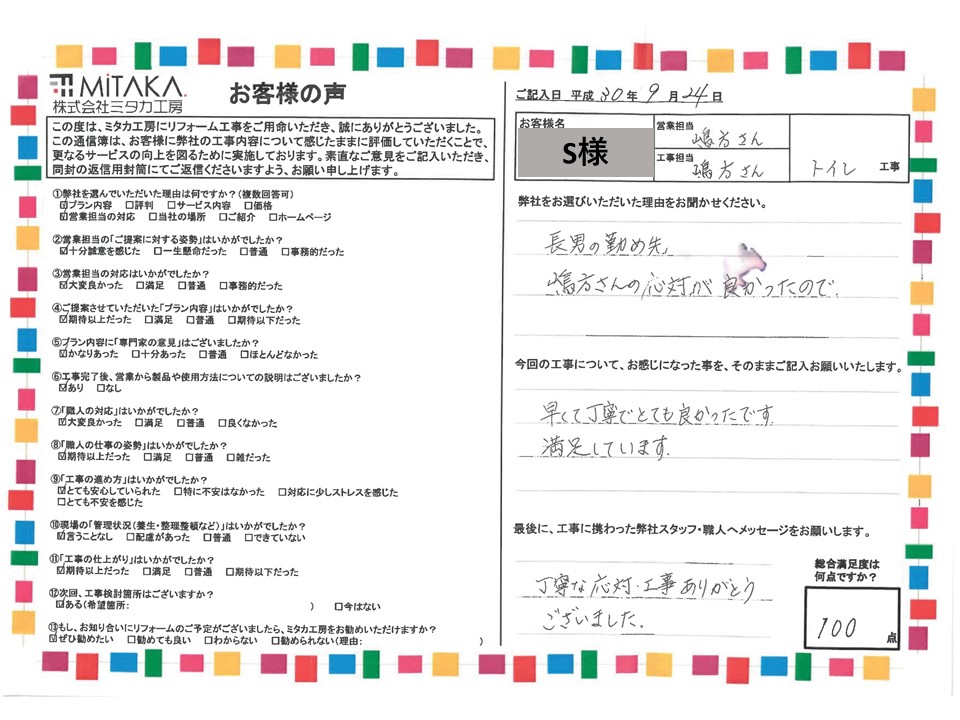 MiTAKA
株式会社ミタカ工房
お客様の声
この度は、ミタカ工房にリフォーム工事をご用命いただき、誠にありがとうございました。
この通信簿は、お客様に弊社の工事内容について感じたままに評価していただくことで、
更なるサービスの向上を図るために実施しております。素直なご意見をご記入いただき、
同封の返信用封筒にてご返信くださいますよう、お願い申し上げます。
①弊社を選んでいただいた理由は何ですか?(複数回答可)
☑プラン内容 □評判 □サービス内容 □価格
☑営業担当の対応 □当社の場所 □ご紹介 □ホームページ
②営業担当の「ご提案に対する姿勢」はいかがでしたか?
☑十分誠意を感じた □一生懸命だった □普通 □事務的だった
③営業担当の対応はいかがでしたか?
☑大変良かった □満足 □普通 □事務的だった
④ご提案させていただいた「プラン内容」はいかがでしたか?
☑期待以上だった □満足 □普通 □期待以下だった
⑤プラン内容に「専門家の意見」はございましたか?
☑かなりあった □十分あった □普通 □ほとんどなかった
⑥工事完了後、営業から製品や使用方法についての説明はございましたか?
☑あり □なし
⑦「職人の対応」はいかがでしたか?
☑大変良かった □満足 □普通 □良くなかった
⑧「職人の仕事の姿勢」はいかがでしたか?
☑期待以上だった □満足 □普通 □雑だった
⑨「工事の進め方」はいかがでしたか?
☑とても安心していられた □特に不安はなかった □対応に少しストレスを感じた
□とても不安を感じた
⑩現場の「管理状況(養生・整理整頓など)」はいかがでしたか?
☑言うことなし □配慮があった □普通 □できていない
⑪「工事の仕上がり」はいかがでしたか?
☑期待以上だった □満足 □普通 □期待以下だった
⑫次回、工事検討箇所はございますか?
☑ある(希望箇所: ) □今はない
⑬もし、お知り合いにリフォームのご予定がございましたら、ミタカ工房をお勧めいただけますか?
☑ぜひ勧めたい □勧めても良い □わからない □勧められない(理由: )
ご記入日 平成 30 年 9 月 24 日
お客様名
S様
営業担当
嶋方さん
工事担当
嶋方さん
トイレ 工事
弊社をお選びいただいた理由をお聞かせください。
長男の勤め先、
嶋方さんの応対が良かったので、
今回の工事について、お感じになった事を、そのままご記入お願いいたします。
早くて丁寧でとても良かったです。
満足しています。
最後に、工事に携わった弊社スタッフ・職人へメッセージをお願いします。
丁寧な応対・工事ありがとう
ございました。
総合満足度は
何点ですか?
100 点